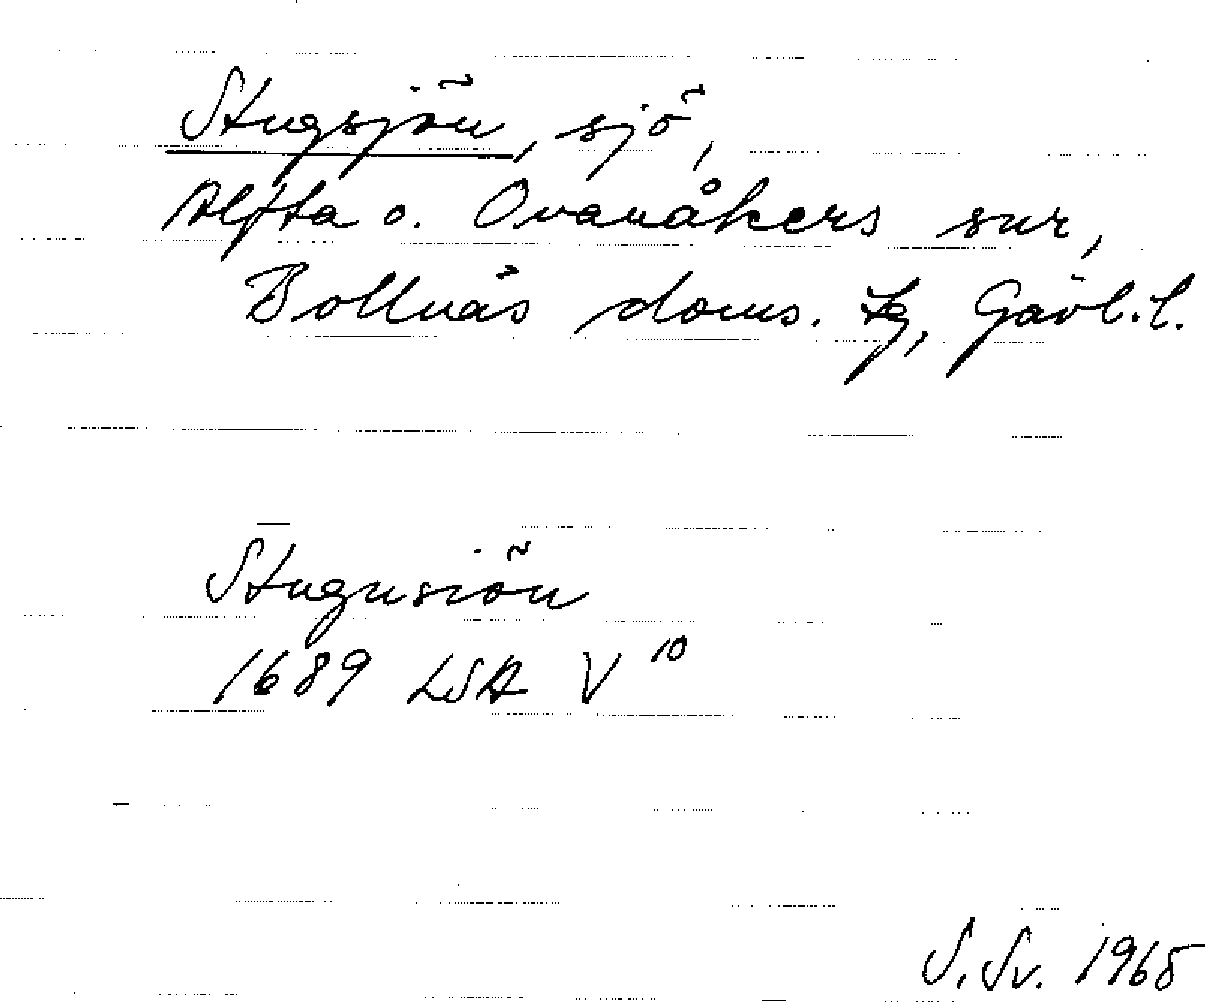 Stugsjön, sjö,
Alfta o. Ovanåkers snr,
Bollnäs doms. tg, Gävl. l.
Stugusiön
1689 LSA V 10
S. Sv. 1965